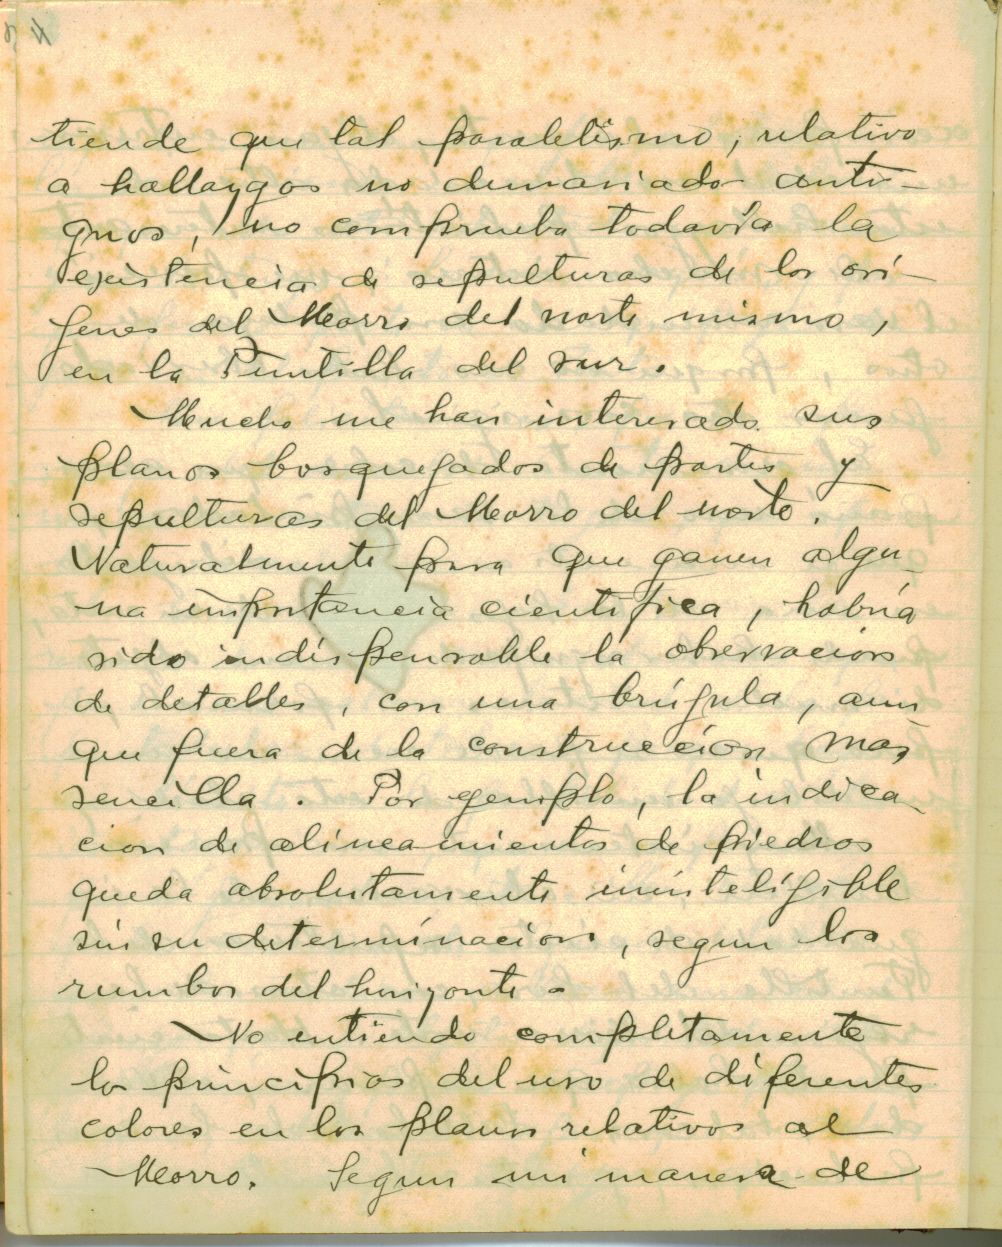 tiende que tal paralelismo, relativo
a hallazgos no demasiado anti-
guos, no comprueba todavía la
existencia de sepulturas de los orí-
genes del Morro del norte mismo,
en la Puntilla del sur.
Mucho me han interesado sus
planos bosquegados de partes y
sepulturas del Morro del norte.
Naturalmente para que ganen algu-
na importancia cientifica, habría
sido indispensable la observacion
de detalles, con una brújula, aun
que fuera de la construccion mas
sencilla. Por egemplo, la indica-
cion de alineamientos de piedras
queda absolutamente ininteligible
sin su determinacion, segun los
rumbos del horizonte.
No entiendo completamente
los principios del uso de diferentes
colores en los planos relativos al
Morro. Segun mi manera de